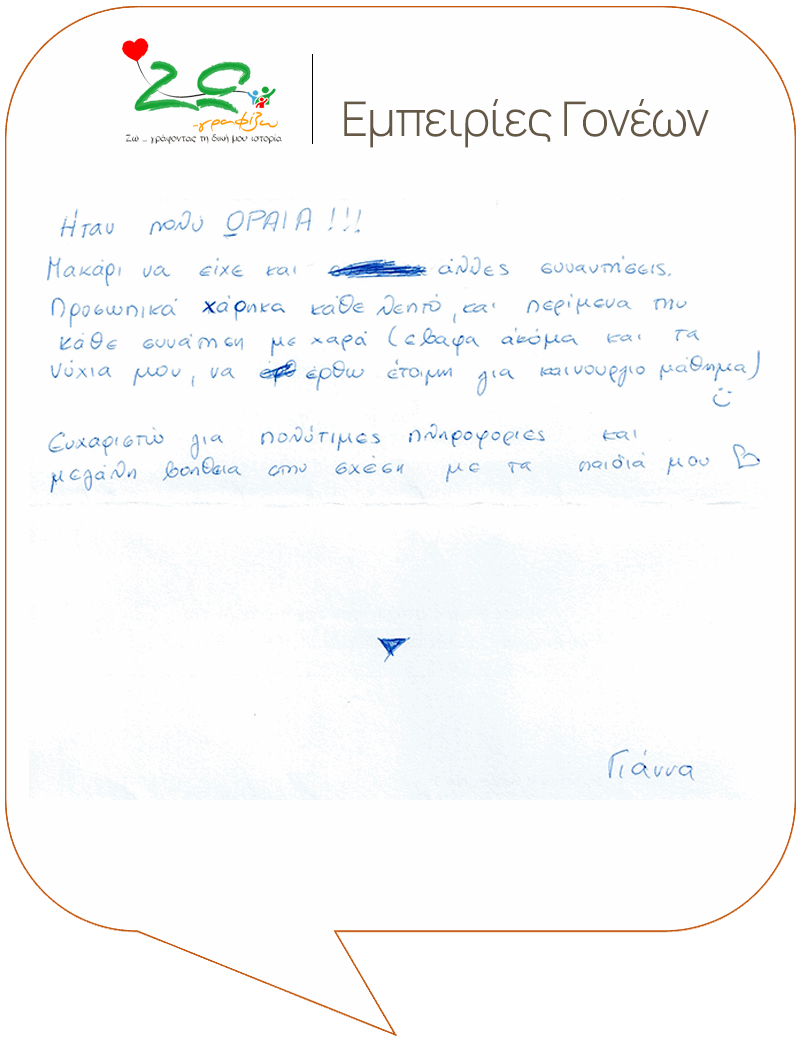 Ζω
...γραφίζω
Ζω ... γράφοντας τη δική μου ιστορία
Εμπειρίες Γονέων
Ήταν πολυ ΩΡΑΙΑ!!!
Μακάρι να είχε και άλλες συναντήσεις.
Προσωπικά χάρηκα κάθε λεπτό, και περίμενα την
κάθε συνάτηση με χαρά (εβαφα ακόμα και τα
νύχια μου, να έρθω έτοιμη για καινουργιο μάθημα)
Ευχαριστώ για πολύτιμες πληροφοριες και
μεγάλη βοήθεια στην σχέση με τα παιδιά μου
Γιάννα